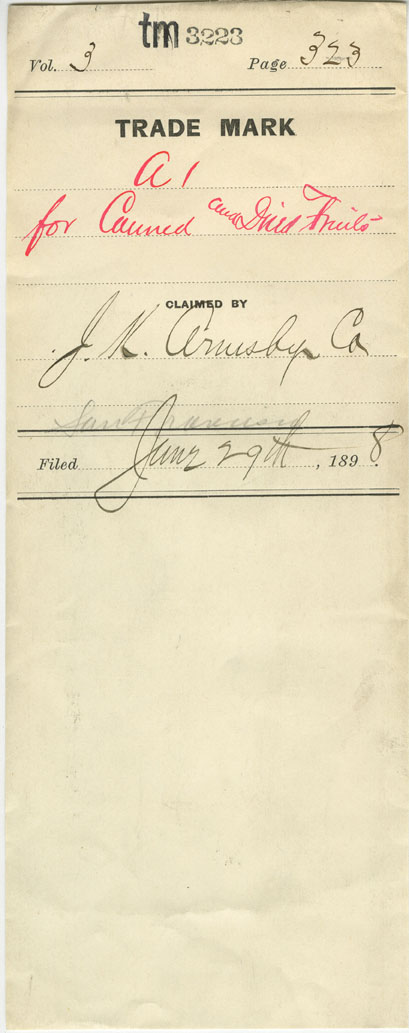 tm 3223
Vol. 3 Page 323
TRADE MARK
A 1
for Canned and Dried Fruits
CLAIMED BY
J. K. Armsby Co
San Francisco
Filed June 29th, 1898